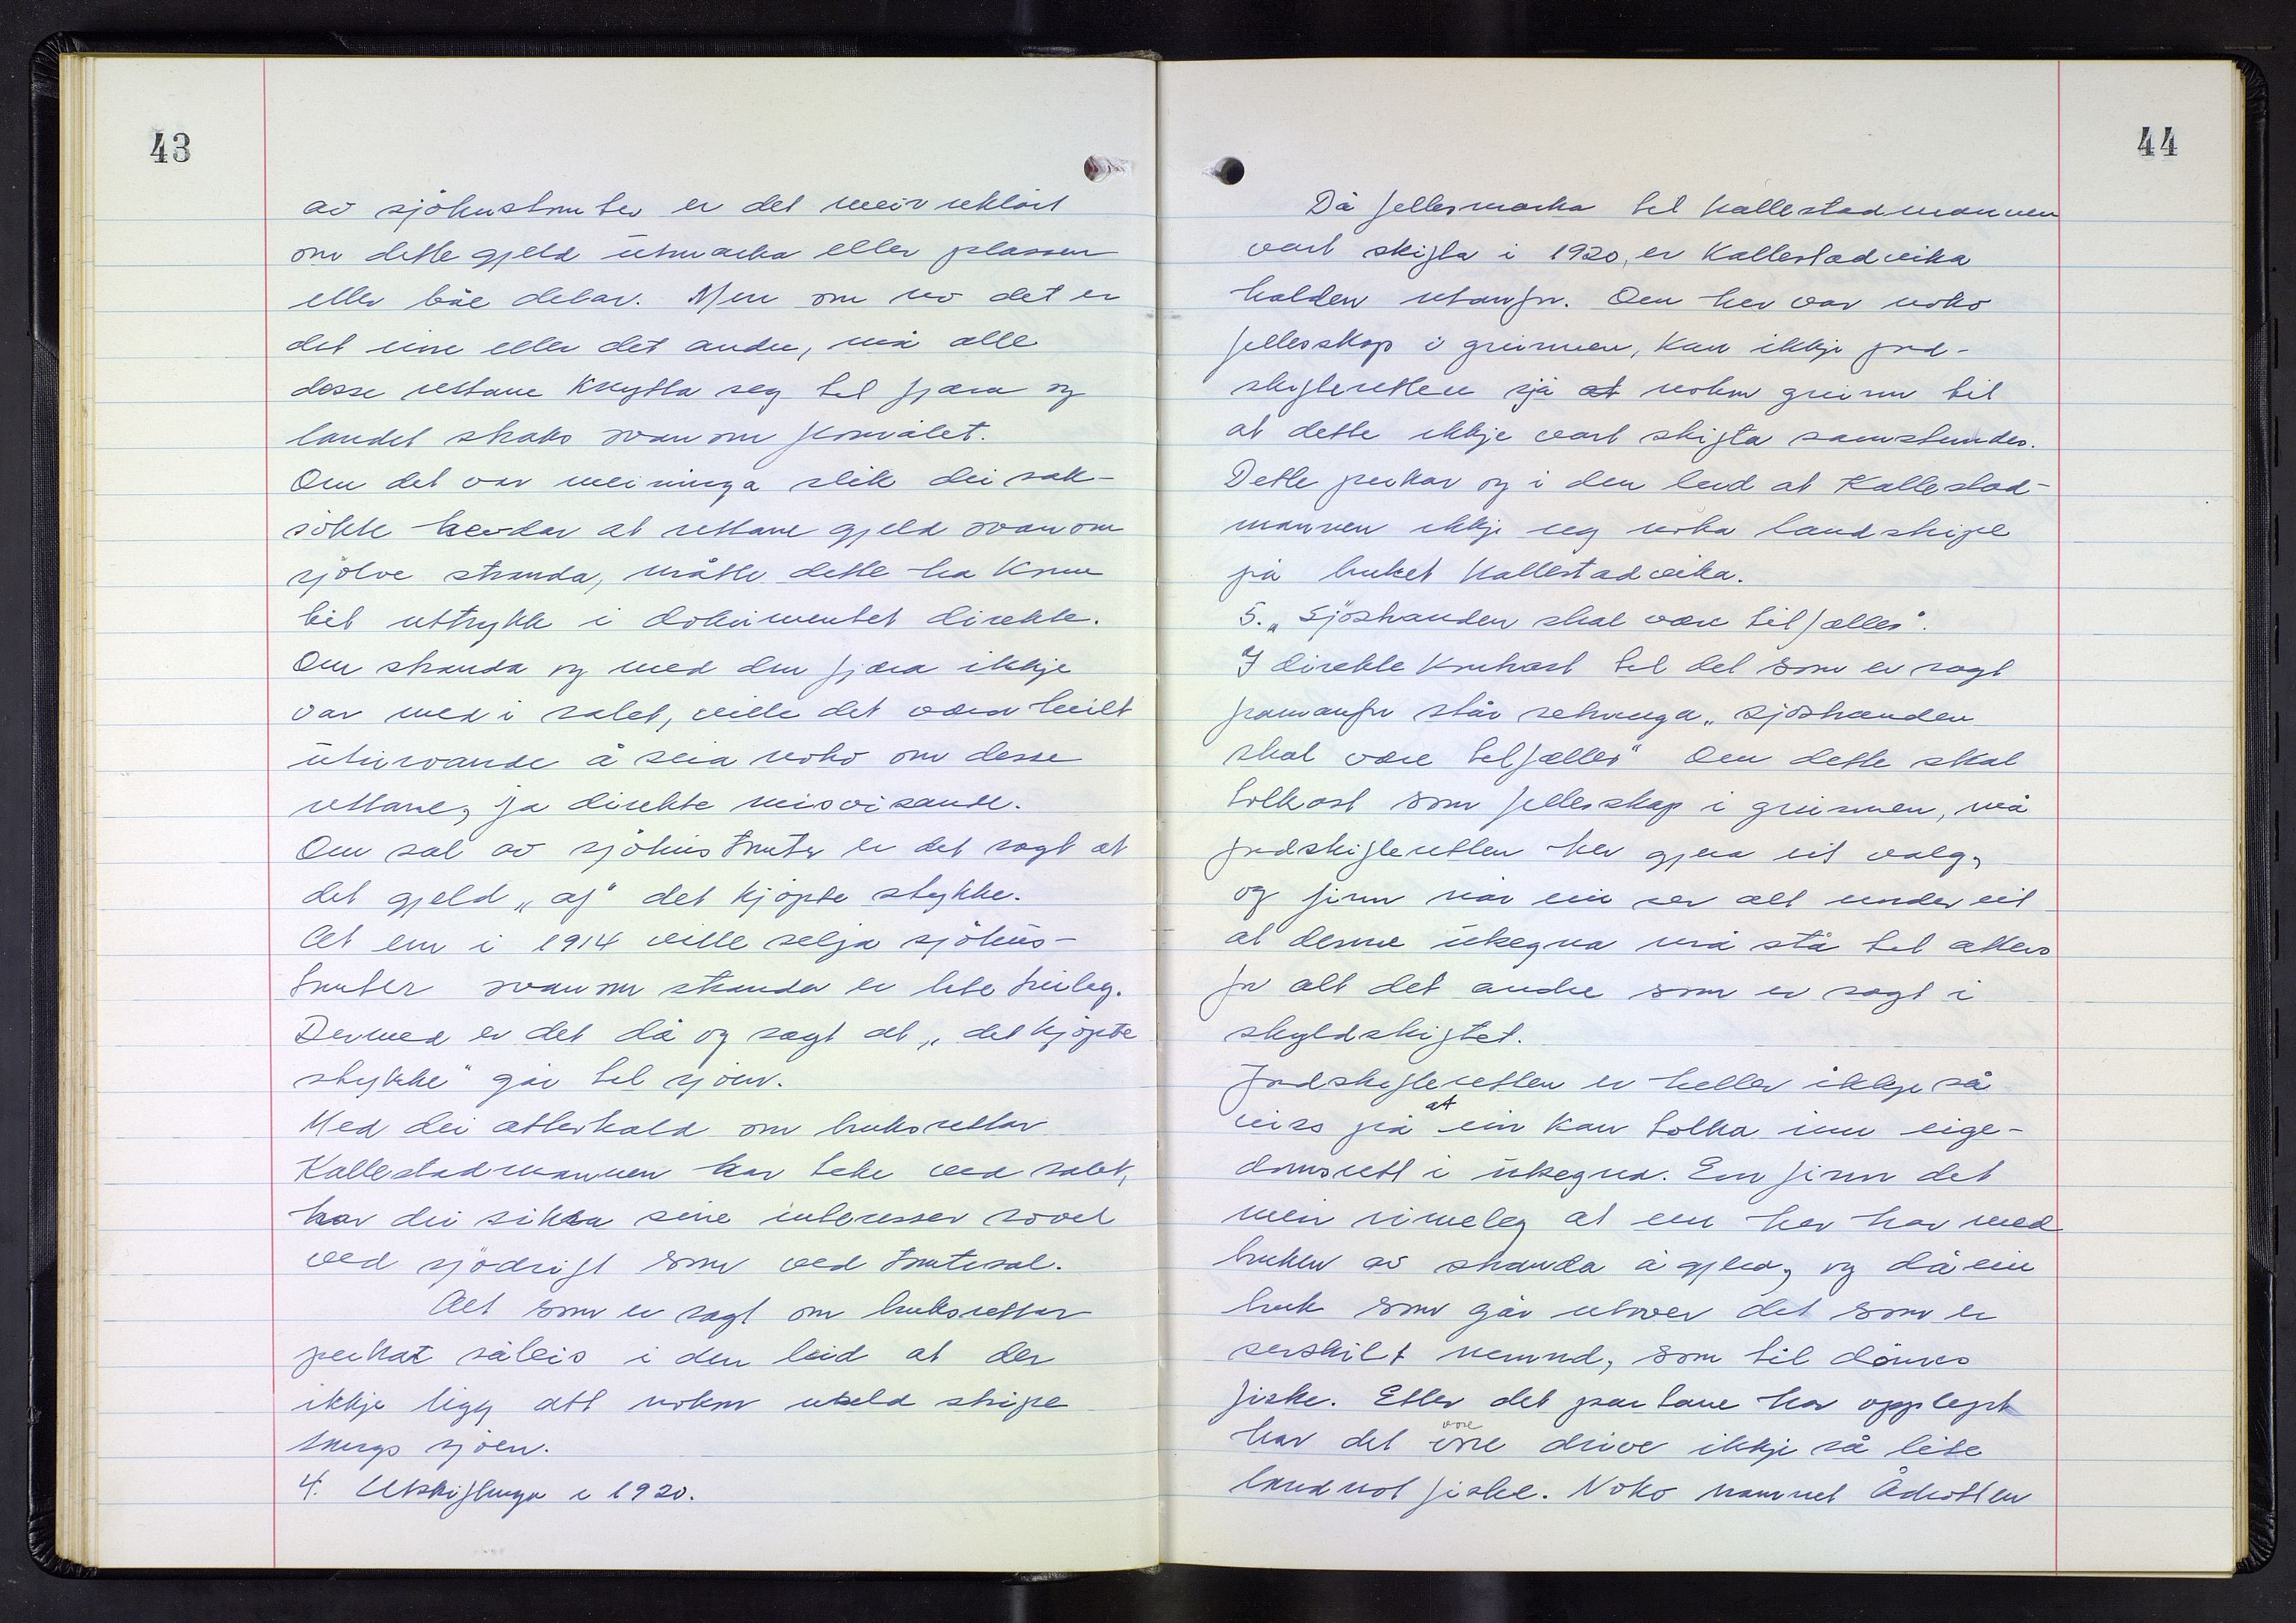 43
av sjöhustomter er det meir uklårt
om dette gjeld utmarka eller plassen
eller båe delar. Men om no det er
det eine eller det andre, må alle
desse rettane knytta seg til fjæra og
landet straks ovanom flomålet.
Om det var meininga slik dei sak-
sökte hevdar at rettane gjeld ovanom
sjölve stranda, måtte dette ha kome
til uttrykk i dokumentet direkte.
Om stranda og med den fjæra ikkje
var med i salet, ville det vera heilt
uturvande å seia noko om desse
rettane, ja direkte misvisande.
Om sal av sjöhustomter er det sagt at
det gjeld „af" det kjöpte stykke.
At em i 1914 ville selja sjöhus-
tomter ovanom stranda er lite truleg.
Dermed er det då og sagt at „det kjöpte
stykke" går til sjöen.
Med dei atterhald om bruksrettar
Kallestadmannen har teke ved salet,
har dei sikra sine interesser sovel
ved sjödrift som ved tomtesal.
Alt som er sagt om bruksrettar
peikar såleis i den leid at der
ikkje ligg att nokon useld stripe
langs sjöen.
4. Utskiftinga i 1920.
44
Då fellesmarka til Kallestadmannen
vart skifta i 1920, er Kallestadvika
halden utanfor. Om her var noko
fellesskap i grunnen, kan ikkje jord-
skifteretten sjå at nokon grunn til
at dette ikkje vart skifta samstundes.
Dette peikar og i den leid at Kallestad-
mannen ikkje eig noka landstripe
på bruket Kallestadvika.
5. „Sjöstranden skal være tilfælles".
I direkte kontrast til det som er sagt
framanfor står setninga „sjöstranden
skal være tilfælles" Om dette skal
tolkast som fellesskap i grunnen, må
jordskifteretten her gjera eit valg,
og finn når ein ser alt under eit
at denne utsegna må stå til atters
for alt det andre som er sagt i
skyldskiftet.
Jordskifteretten er heller ikkje så
viss på at ein kan tolka inn eige-
domsrett i utsegna. Em finn det
meir rimeleg at em her har med
bruken av stranda å gjera, og då ein
bruk som går utover det som er
serskilt nemnd, som til dömes
fiske. Etter det partane har opplyst
har det vore drive ikkje så lite
landnotfiske. Noko namnet Ådnotten